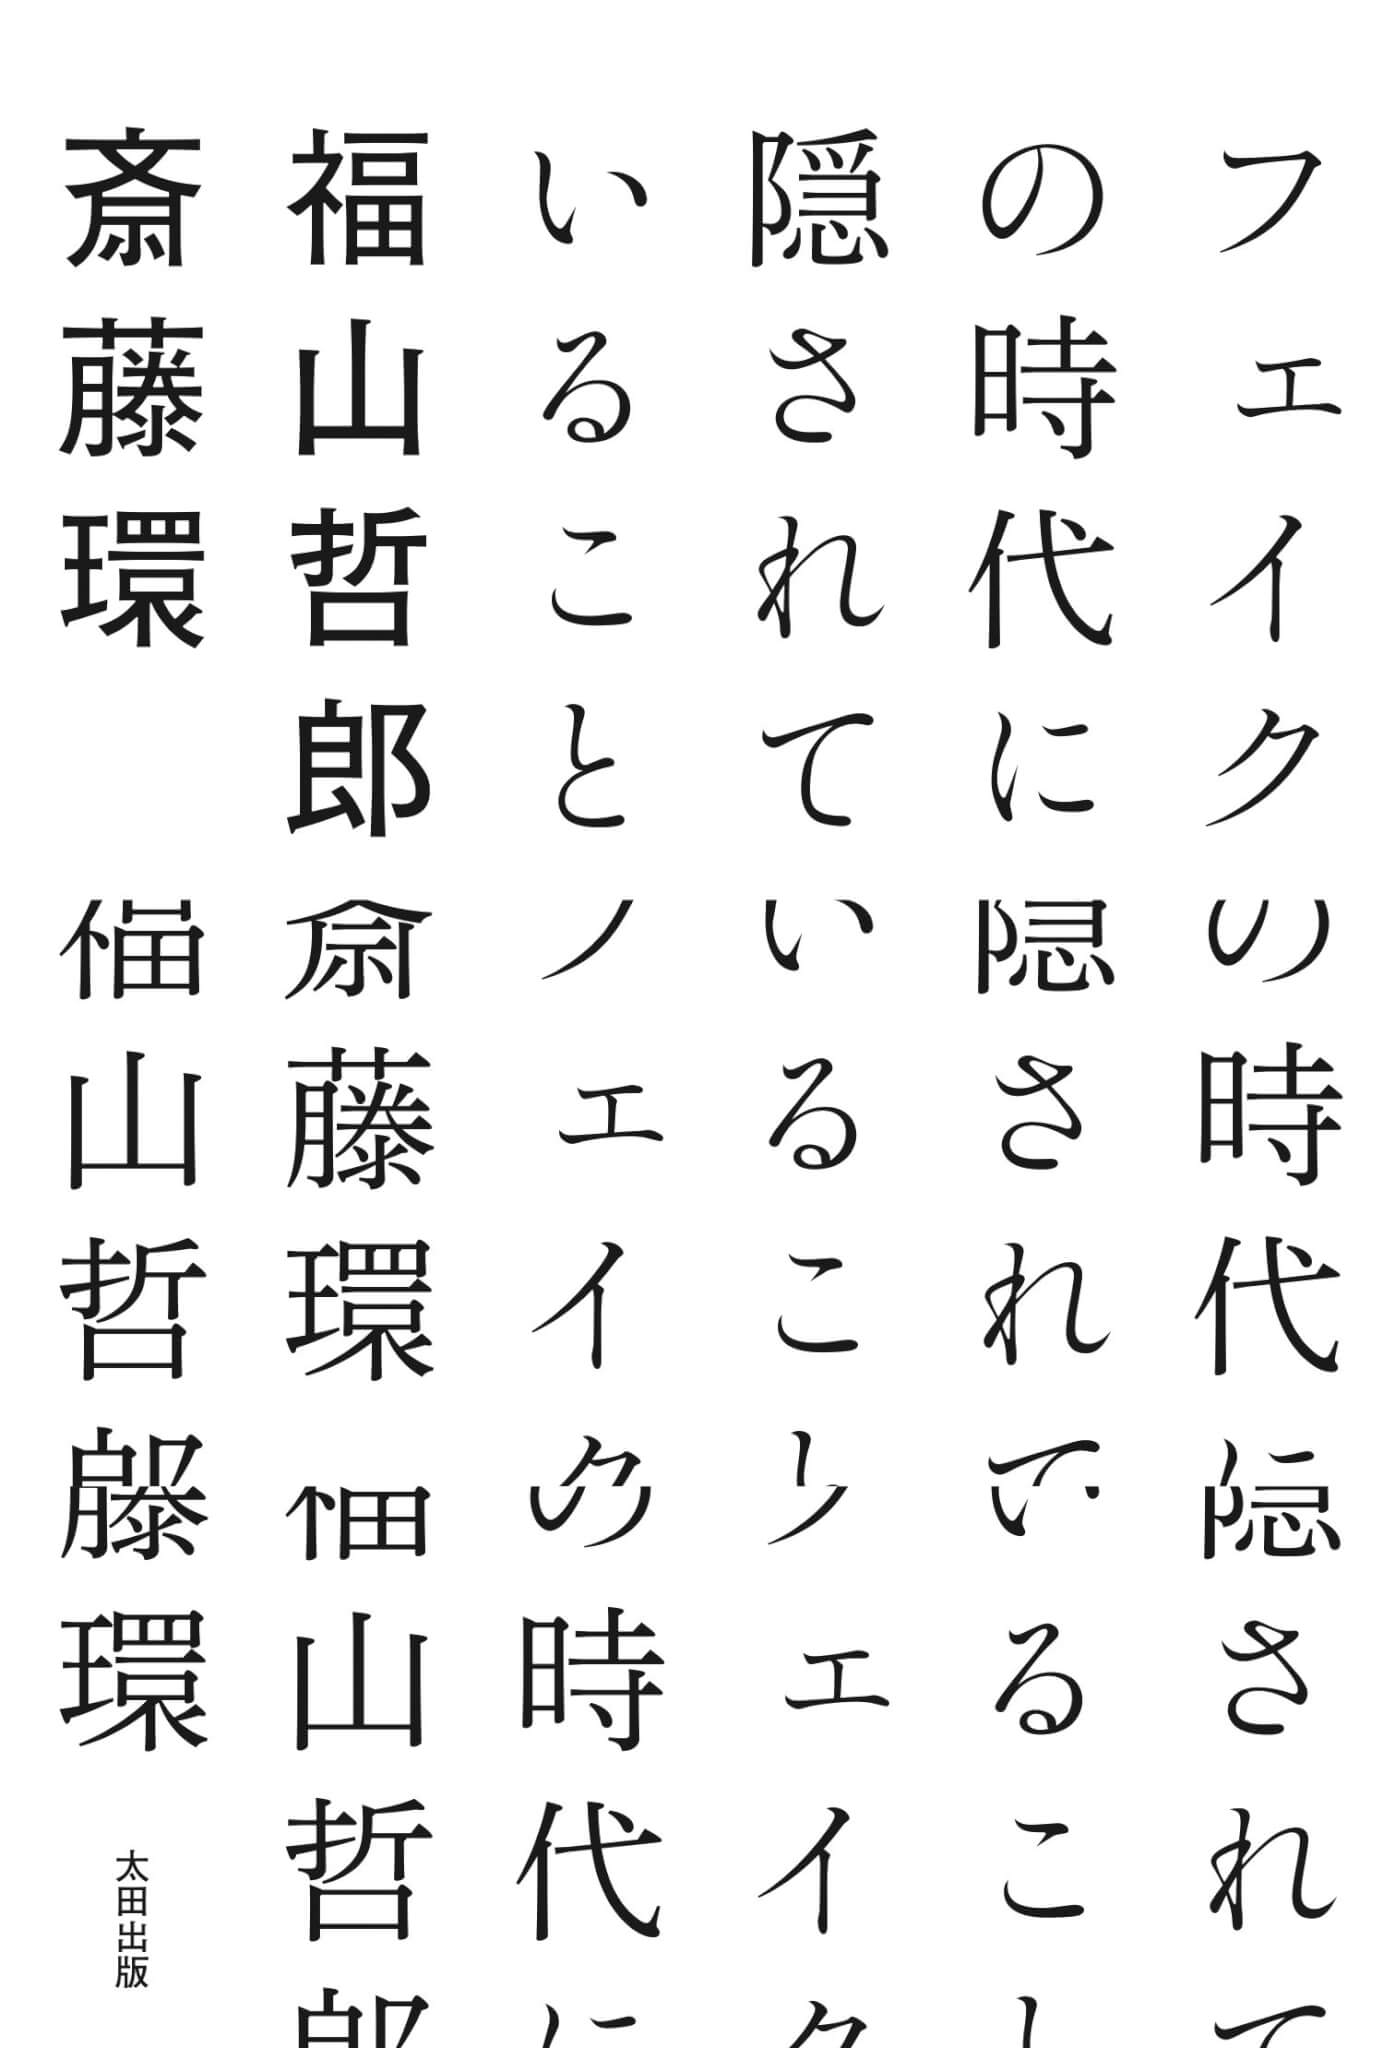 フェイク
の時代に
隠されて
いること
福山哲郎
斎藤環
の時代に
隠されて
いること
フェイク
斎藤環
福山哲郎
隠されて
いること
フェイク
の時代に
福山哲郎
藤環
太田出版